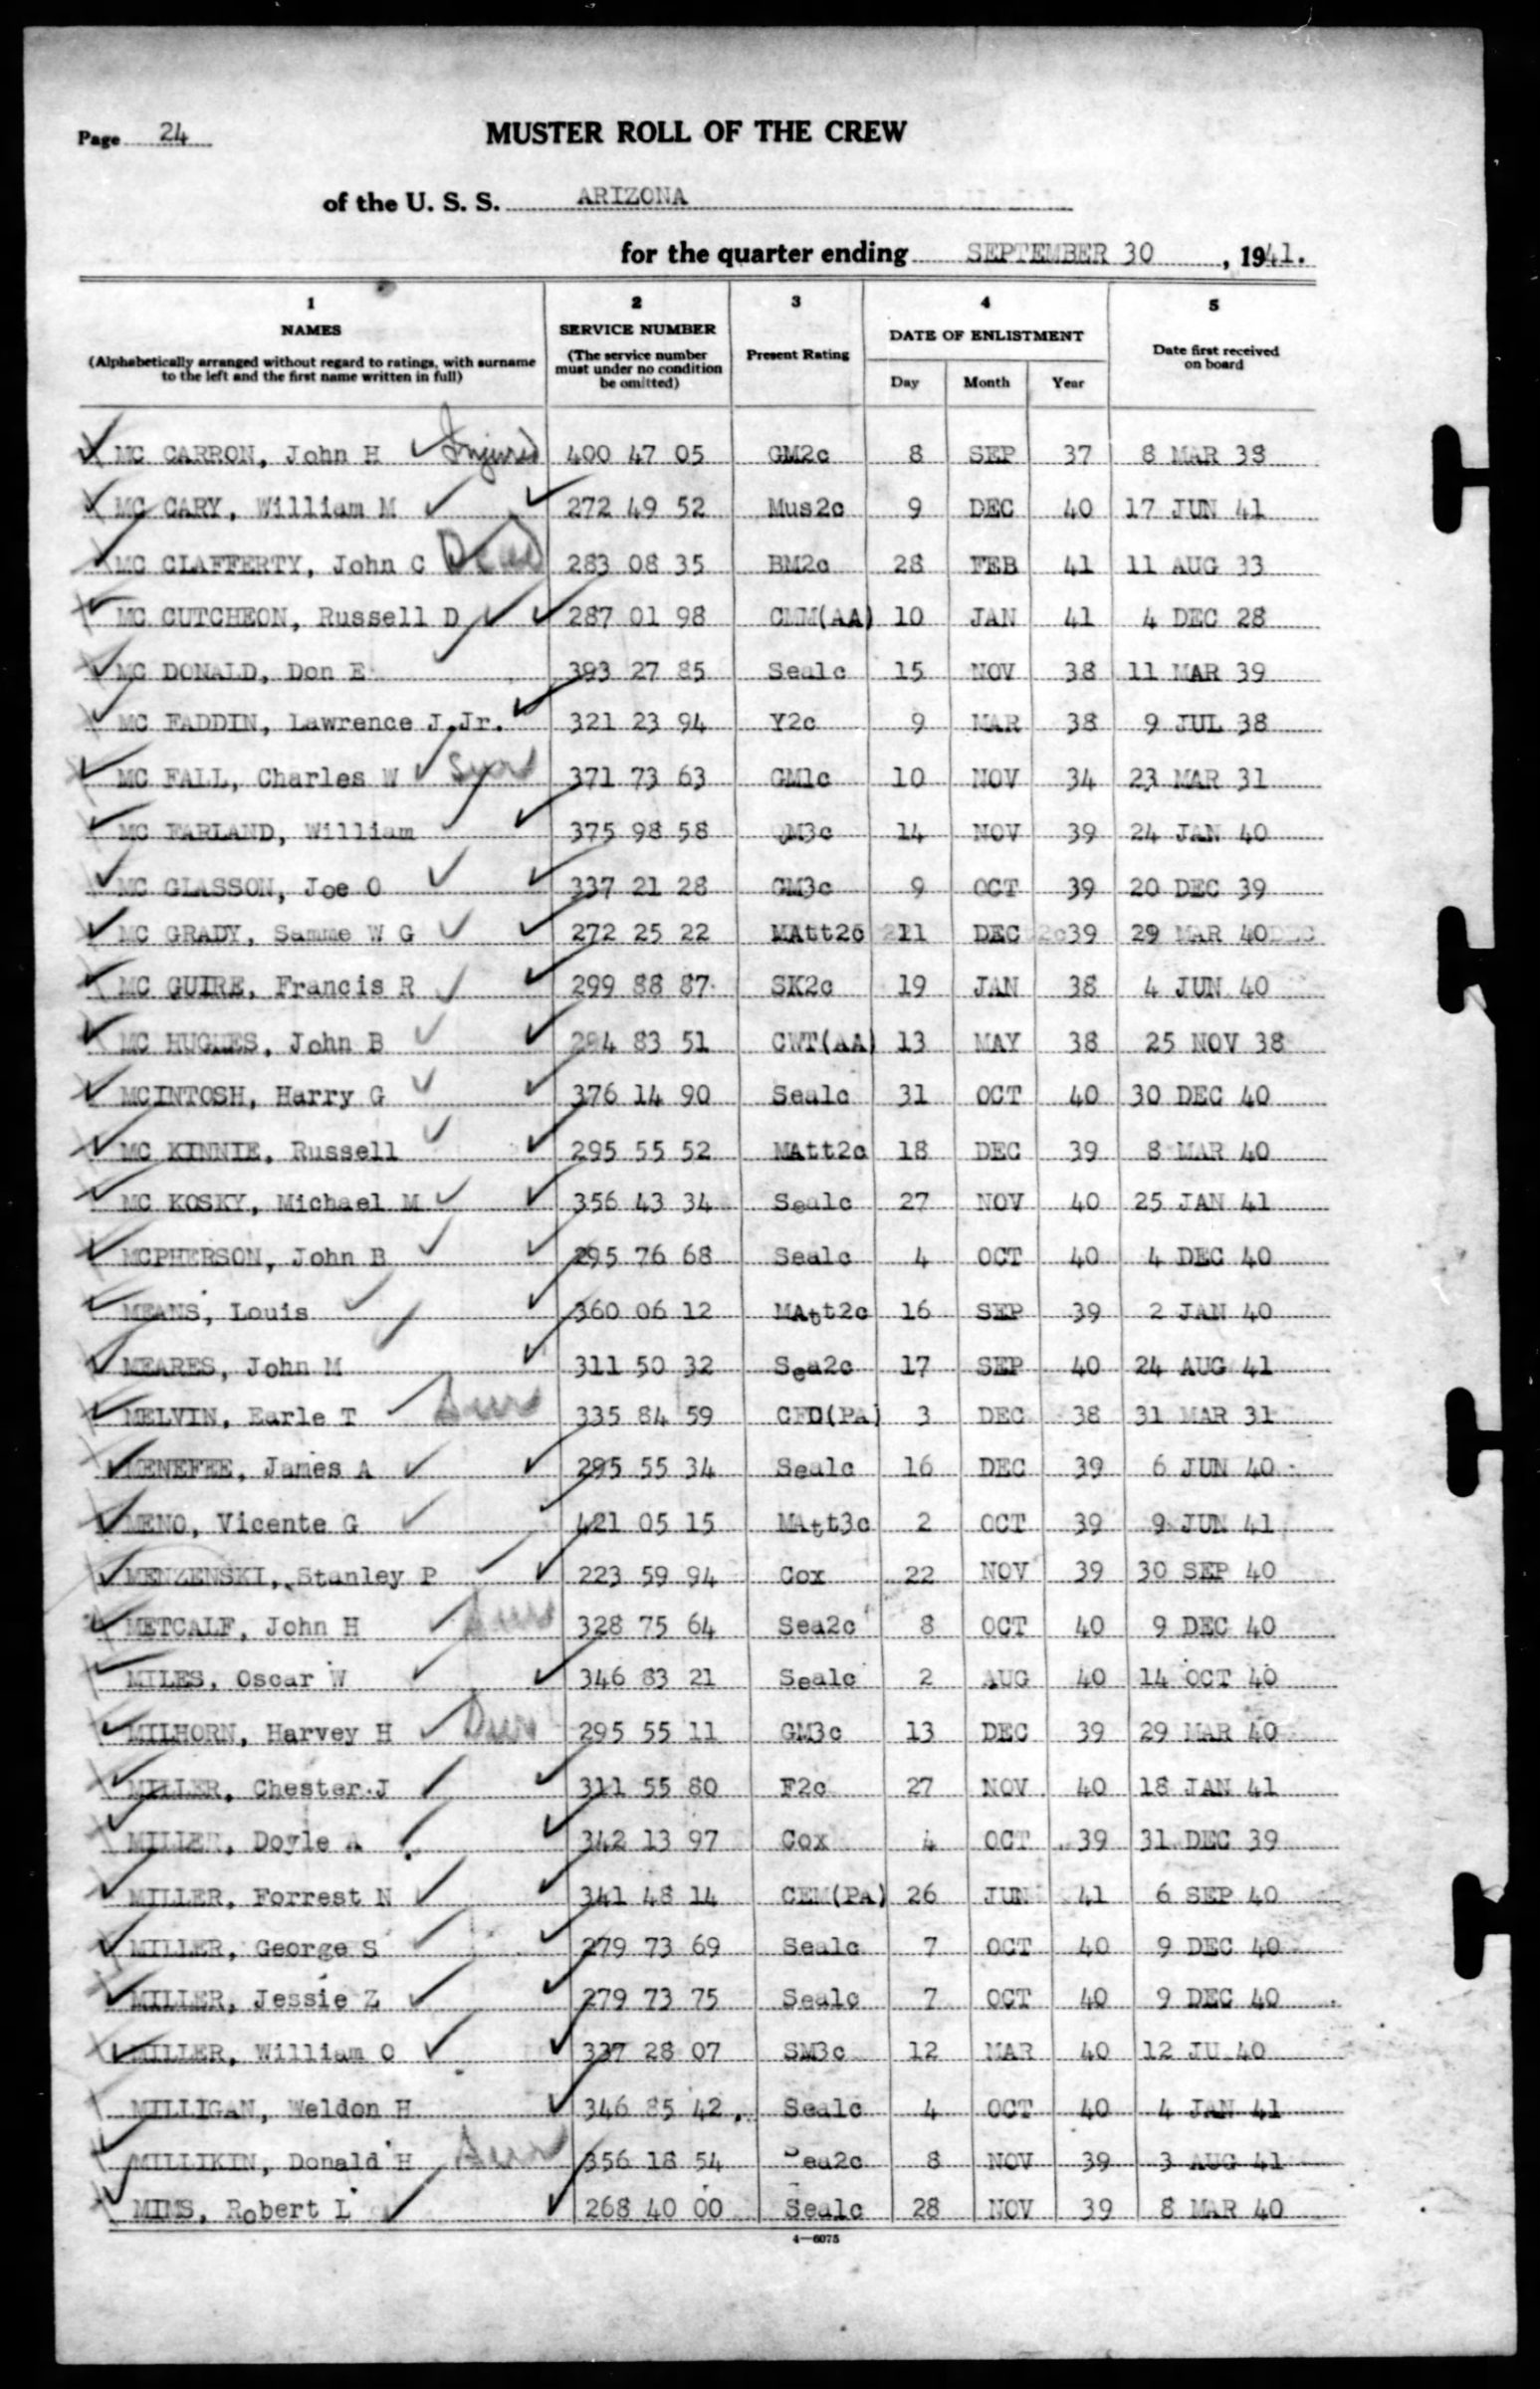 Page 24
MUSTER ROLL OF THE CREW
of the U. S. S. ARIZONA
for the quarter ending SEPTEMBER 30, 1941.
1 2 3 4 5
NAMES SERVICE NUMBER Present Rating DATE OF ENLISTMENT Date first received on board
(Alphabetically arranged without regard to ratings, with surname to the left and the first name written in full) (The service number must under no condition be omitted) Day Month Year
MC CARRON, John H Injured 400 47 05 GM2c 8 SEP 37 8 MAR 38
MC CARY, William M 272 49 52 Mus2c 9 DEC 40 17 JUN 41
MC CLAFFERTY, John C Dead 283 08 35 BM2c 28 FEB 41 11 AUG 33
MC CUTCHEON, Russell D 287 01 98 CMM(AA) 10 JAN 41 4 DEC 28
MC DONALD, Don E 393 27 85 Sea1c 15 NOV 38 11 MAR 39
MC FADDIN, Lawrence J.Jr. 321 23 94 Y2c 9 MAR 38 9 JUL 38
MC FALL, Charles W 371 73 63 GM1c 10 NOV 34 23 MAR 31
MC FARLAND, William 375 98 58 QM3c 14 NOV 39 24 JAN 40
MC GLASSON, Joe O 337 21 28 GM3c 9 OCT 39 20 DEC 39
MC GRADY, Samme W G 272 25 22 MAtt2c 11 DEC 39 29 MAR 40
MC GUIRE, Francis R 299 88 87 SK2c 19 JAN 38 4 JUN 40
MC HUGHES, John B 284 83 51 CWT(AA) 13 MAY 38 25 NOV 38
MCINTOSH, Harry G 376 14 90 Sea1c 31 OCT 40 30 DEC 40
MC KINNIE, Russell 295 55 52 MAtt2c 18 DEC 39 8 MAR 40
MC KOSKY, Michael M 356 43 34 Sea1c 27 NOV 40 25 JAN 41
MCPHERSON, John B 295 76 68 Sea1c 4 OCT 40 4 DEC 40
MEANS, Louis 360 06 12 MAtt2c 16 SEP 39 2 JAN 40
MEARES, John M 311 50 32 Sea2c 17 SEP 40 24 AUG 41
MELVIN, Earle T Surv 335 84 59 CFC(PA) 3 DEC 38 31 MAR 31
MENEFEE, James A 295 55 34 Sea1c 16 DEC 39 6 JUN 40
MENO, Vicente G 421 05 15 MAtt3c 2 OCT 39 9 JUN 41
MENZENSKI, Stanley P 223 59 94 Cox 22 NOV 39 30 SEP 40
METCALF, John H Surv 328 75 64 Sea2c 8 OCT 40 9 DEC 40
MILES, Oscar W 346 83 21 Sea1c 2 AUG 40 14 OCT 40
MILHORN, Harvey H Surv 295 55 11 GM3c 13 DEC 39 29 MAR 40
MILLER, Chester J 311 55 80 F2c 27 NOV 40 18 JAN 41
MILLER, Doyle A 342 13 97 Cox 4 OCT 39 31 DEC 39
MILLER, Forrest N 341 48 14 CEM(PA) 26 JUN 41 6 SEP 40
MILLER, George S 279 73 69 Sea1c 7 OCT 40 9 DEC 40
MILLER, Jessie Z 279 73 75 Sea1c 7 OCT 40 9 DEC 40
MILLER, William O 337 28 07 SM3c 12 MAR 40 12 JU 40
MILLIGAN, Weldon H 346 85 42 Sea1c 4 OCT 40 4 JAN 41
MILLIKIN, Donald H Surv 356 18 54 Sea2c 8 NOV 39 3 AUG 41
MIMS, Robert L 268 40 00 Sea1c 28 NOV 39 8 MAR 40
4—6075